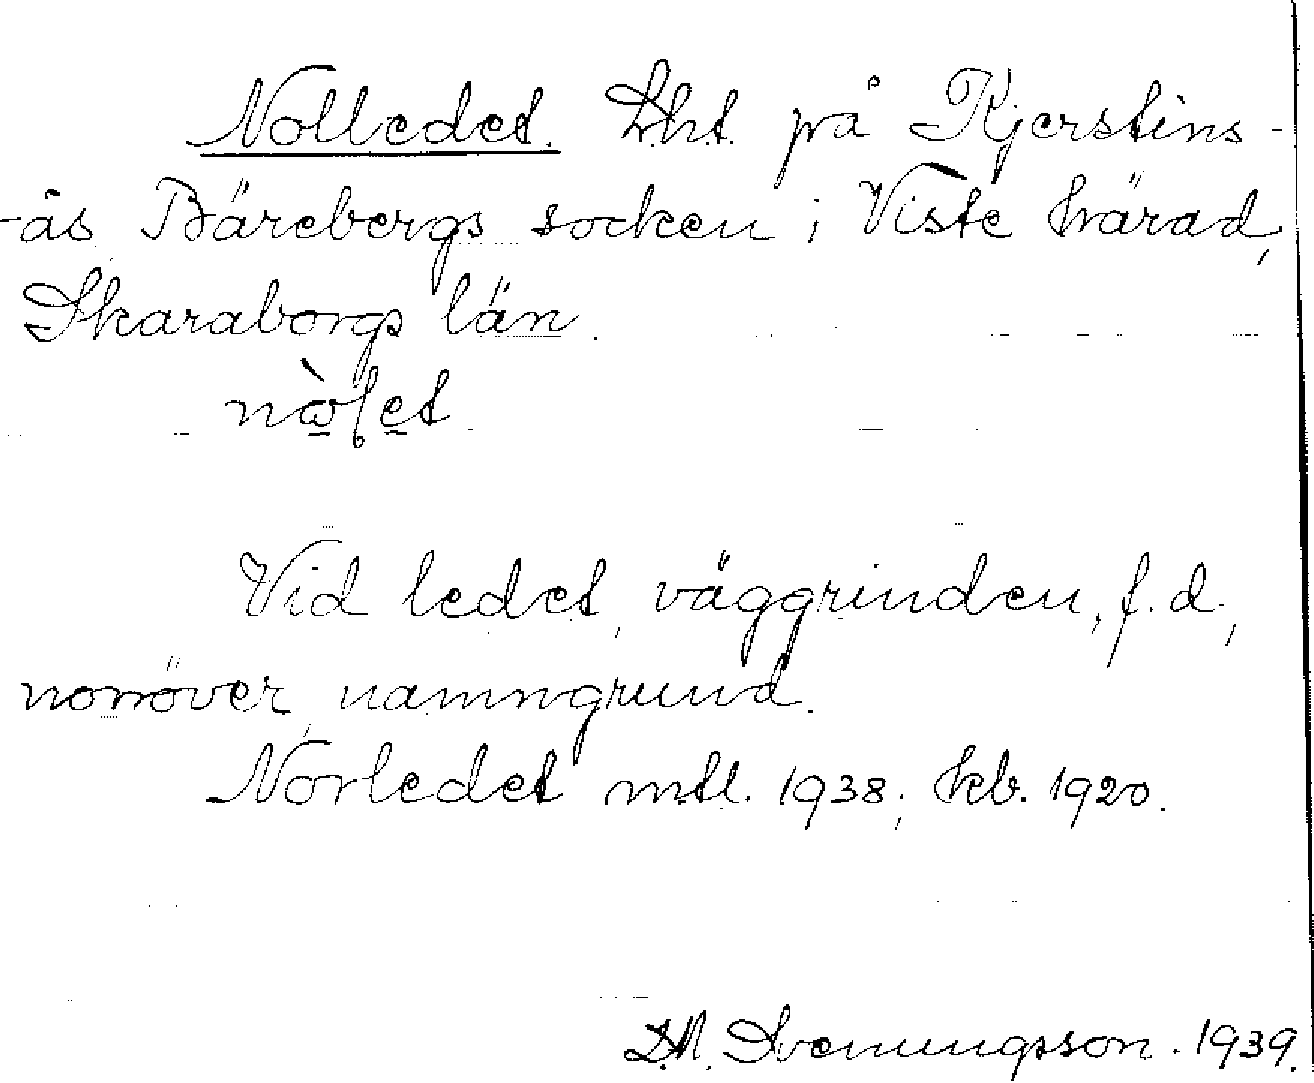 Nolledet. Lht. på Kjerstins-
-ås Bärebergs socken i Viste härad,
Skaraborgs län.
Vid ledet, väggrinden, f.d.,
norröver, namngrund.
Norledet mtl. 1938; kb. 1920.
D.A. Svenungsson. 1939.